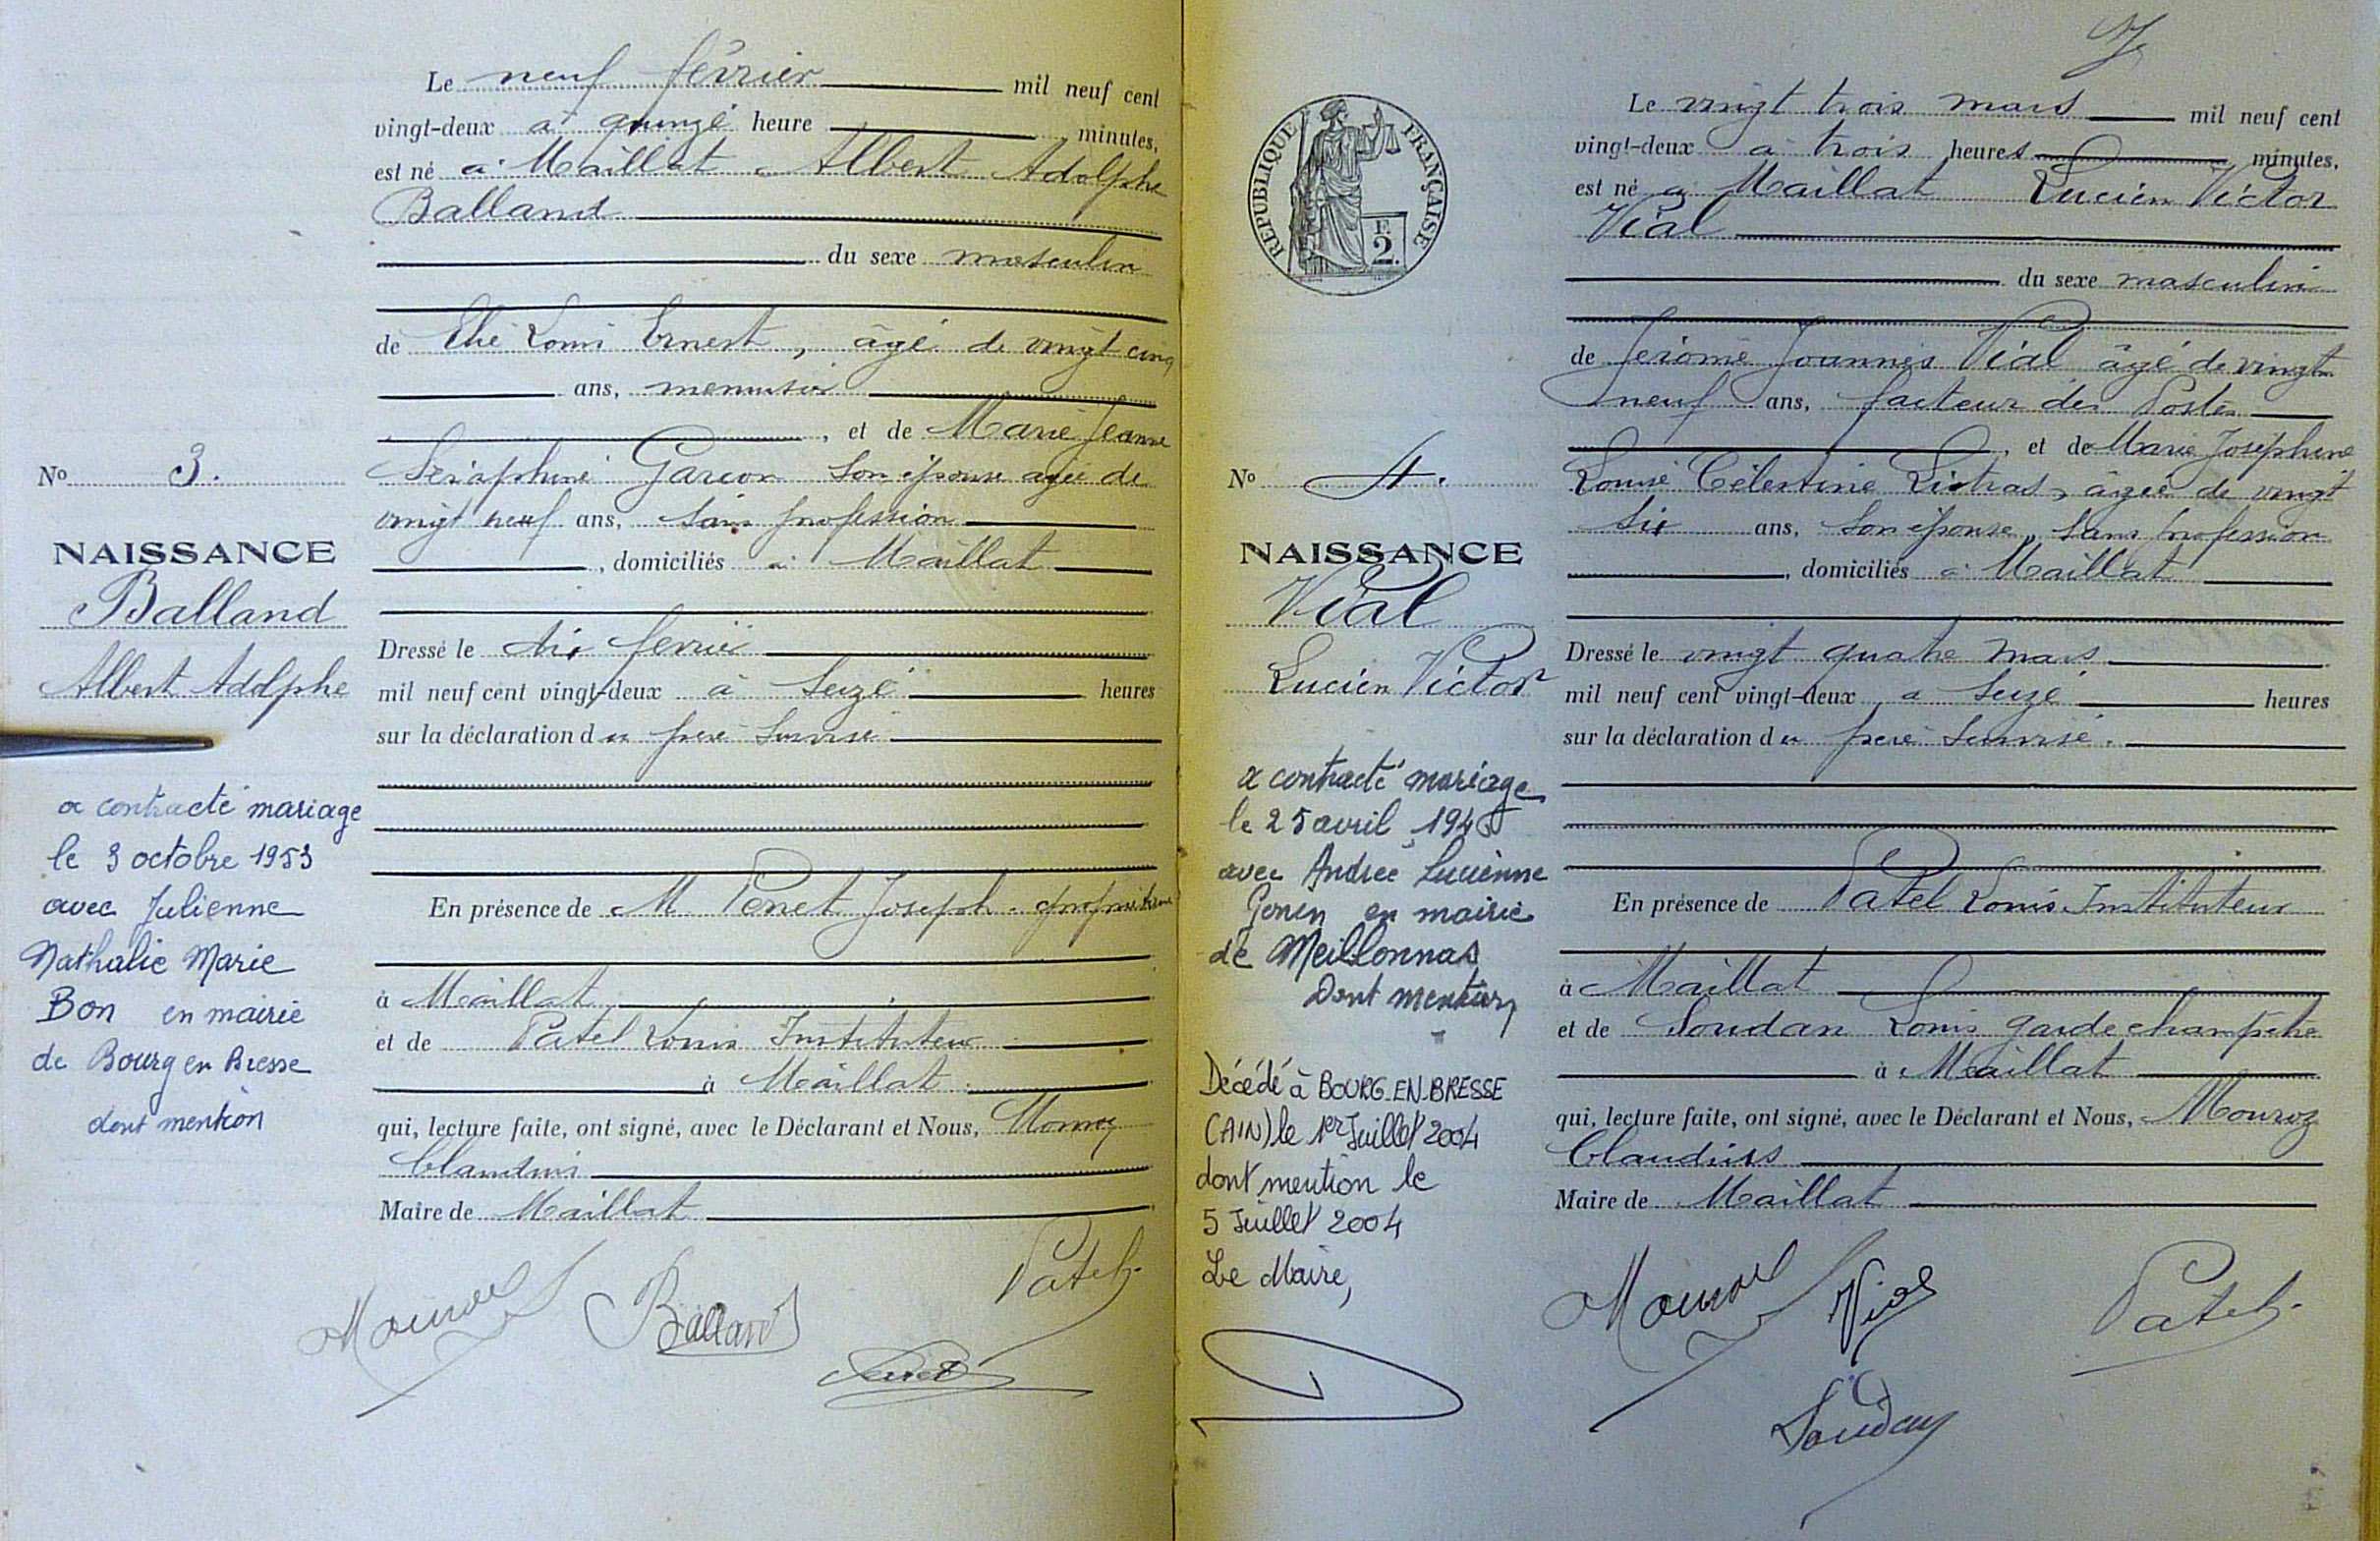 Le neuf février mil neuf cent
vingt-deux à quinze heure minutes,
est né à Maillat Albert Adolphe
Balland
du sexe masculin
de Elie Louis Ernest, âgé de vingt cinq
ans, menuisier
, et de Marie Jeanne
Séraphine Garcon son épouse agée de
vingt neuf ans, sans profession
, domiciliés à Maillat
Dressé le dix fevrier
mil neuf cent vingt-deux à seize heures
sur la déclaration du père susvisé
En présence de M Penet Joseph propriétaire
à Maillat
et de Patel Louis Instituteur
à Maillat
qui, lecture faite, ont signé, avec le Déclarant et Nous, Mouroz
Claudius
Maire de Maillat
Balland
Patel
Penet
No 3.
NAISSANCE
Balland
Albert Adolphe
a contracté mariage
le 3 octobre 1953
avec Julienne
Nathalie Marie
Bon en mairie
de Bourg en Bresse
dont mention
RÉPUBLIQUE FRANÇAISE
F.
2.
No 4.
NAISSANCE
Vial
Lucien Victor
a contracté mariage
le 25 avril
avec Andrée Lucienne
en mairie
de Meillonnas
Dont mention
Décédé à BOURG-EN-BRESSE
(AIN) le 1er Juillet 2004
dont mention le
5 Juillet 2004
Le Maire,
Le vingt trois mars mil neuf cent
vingt-deux à trois heures minutes,
est né à Maillat Lucien Victor
Vial
du sexe masculin
de Jérome Joannès Vial âgé de vingt
neuf ans, facteur des Postes
, et de Marie Joséphine
Louise Célestine âgée de vingt
six ans, son épouse, sans profession
, domiciliés à Maillat
Dressé le vingt quatre mars
mil neuf cent vingt-deux à seize heures
sur la déclaration du père susvisé.
En présence de Patel Louis Instituteur
à Maillat
et de Soudan Louis garde champêtre
à Maillat
qui, lecture faite, ont signé, avec le Déclarant et Nous, Mouroz
Claudius
Maire de Maillat
Vial
Patel
Soudan